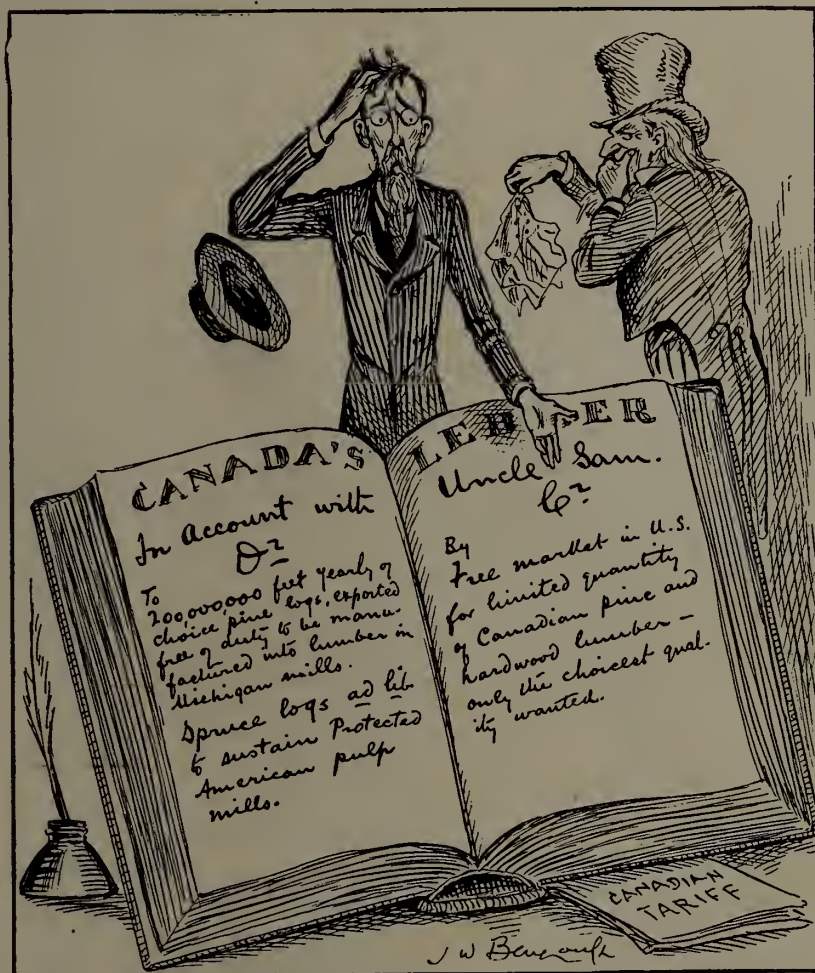 CANADA'S LEDGER
In Account with
Dr
To
200,000,000 feet yearly of
choice pine logs, exported
free of duty to be manu-
factured into lumber in
Michigan mills.
Spruce logs ad lib
to sustain Protected
American pulp
mills.
Uncle Sam.
Cr
By
Free market in U.S.
for limited quantity
of Canadian pine and
hardwood lumber –
only the choicest qual-
ity wanted.
CANADIAN
TARIFF
J W Bengough